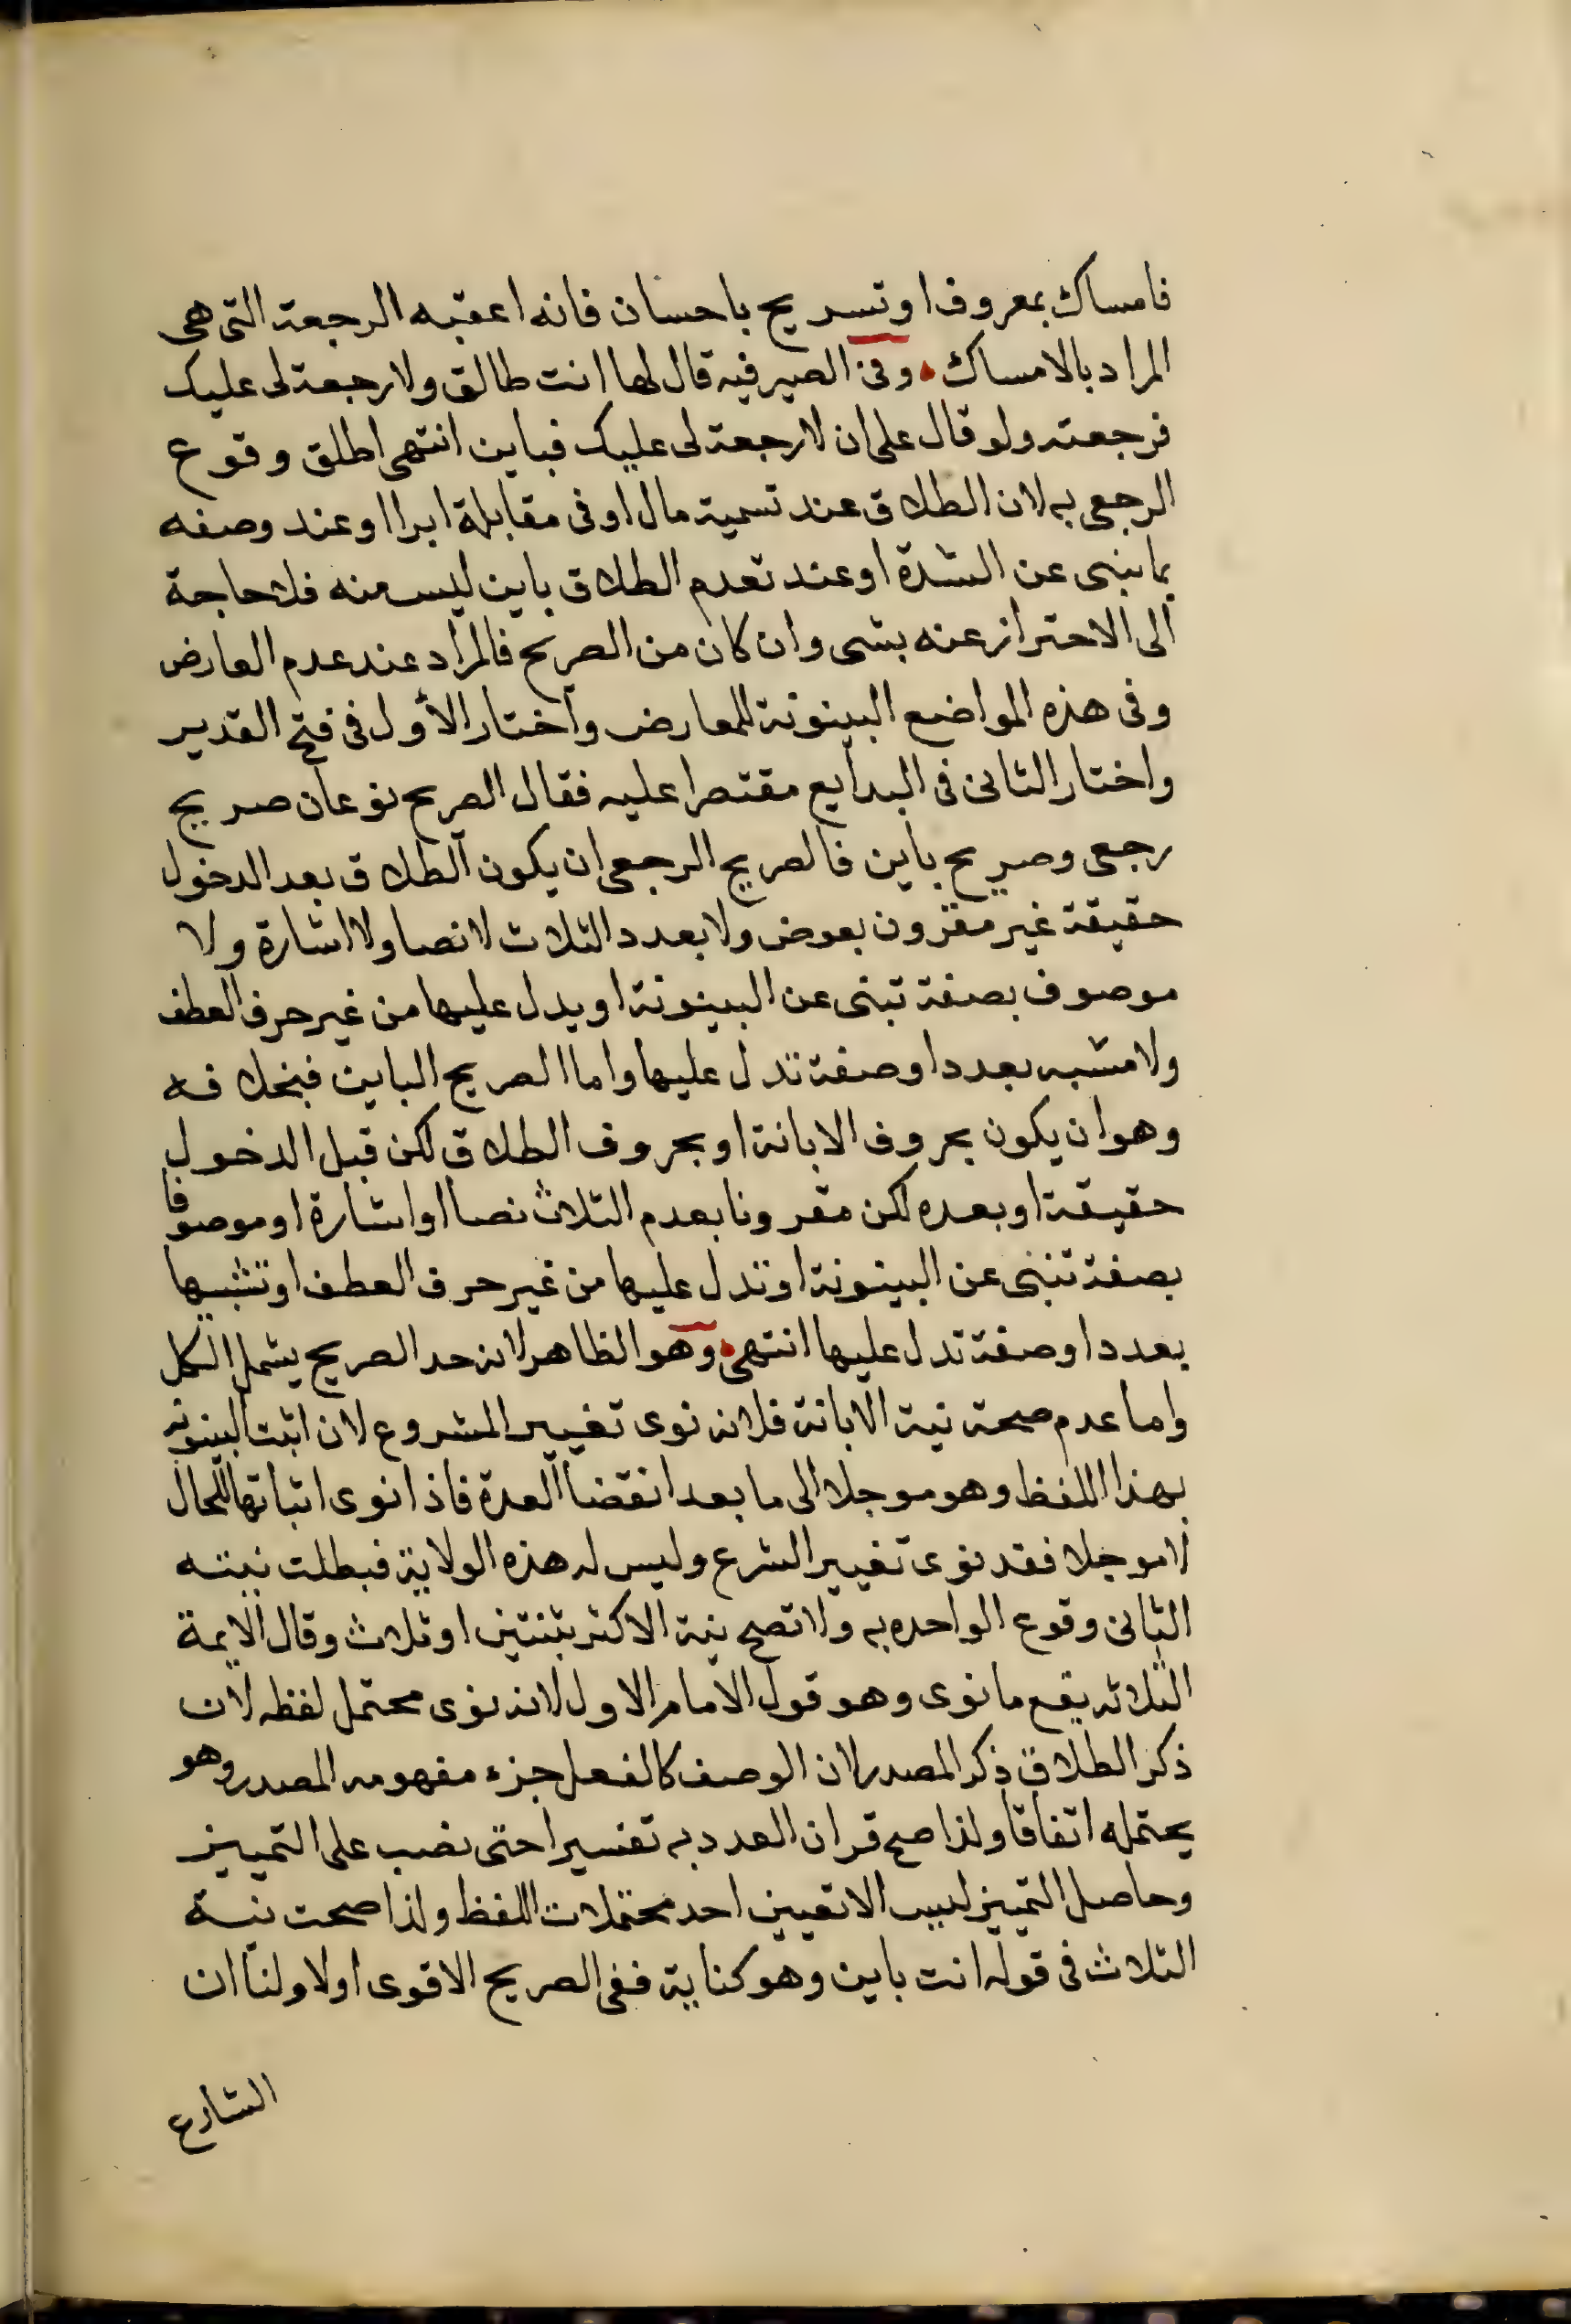 فامساك بمعروف او تسريح باحسان فانه اعقبه الرجعة التى هى
المراد بالامساك وفى الصيرفيه قال لها انت طالق ولا رجعة لى عليك
فرجعته ولو قال على ان لا رجعة لى عليك فباين انتهى اطلق وقوع
الرجعى به لان الطلاق عند تسمية مال او فى مقابلة ابرا او عند وصفه
بما ينبى عن الشدة او عند تعدم الطلاق باين ليس منه فلا حاجة
الى الاحتراز عنه بشى وان كان من الصريح فالمراد عند عدم العارض
وفى هذه المواضع البينونة للمعارض واختار الأول فى فتح القدير
واختار الثانى فى البدايع مقتصرا عليه فقال الصريح نوعان صريح
رجعى وصريح باين فالصريح الرجعى ان يكون الطلاق بعد الدخول
حقيقة غير مقرون بعوض ولا بعدد الثلاث لا نصا ولا اشارة ولا
موصوف بصفة تبنى عن البينونة او يدل عليها من غير حرف العطف
ولا مشبه بعدد او صفة تدل عليها واما الصريح الباين فبخلافه
وهو ان يكون بحروف الابانة او بحروف الطلاق لكن قبل الدخول
حقيقة او بعده لكن مقرونا بعدم الثلاث نصا او اشارة او موصوفا
بصفة تنبى عن البينونة او تدل عليها من غير حرف العطف او تشبيها
بعدد او صفة تدل عليها انتهى وهو الظاهر لانه حد الصريح يشمل الكل
واما عدم صحة نية الابانة فلانه نوى تغيير المشروع لان اثبت البينونه
بهذا اللفظ وهو موجلا الى ما بعد انقضا العدة فاذا نوى اثباتها للحال
لا موجلا فقد نوى تغيير الشرع وليس له هذه الولاية فبطلت نيته
الثانى وقوع الواحده به ولا تصح نية الاكثر بثنتين او ثلاث وقال الايمة
الثلاثه يقع ما نوى وهو قول الامام الاول لانه نوى محتمل لفظه لان
ذكر الطلاق ذكر المصدر لان الوصف كالفعل جزء مفهومه المصدر وهو
يحتمله اتفاقا ولذا صح قران العدد به تفسيرا حتى نصب على التمييز
وحاصل التمييز ليس الا تعيين احد محتملات اللفظ ولذا صحت نية
الثلاث فى قوله انت باين وهو كناية ففى الصريح الاقوى اولا ولنا ان
الشارع